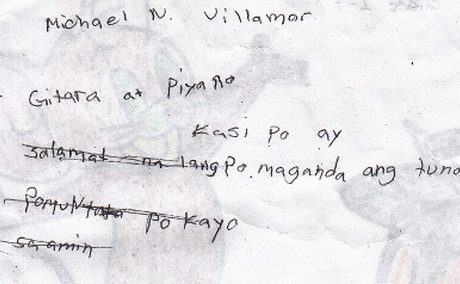 Michael N. Villamor
Gitara at Piyano
Kasi po ay
salamat na lang po. maganda ang tuno
Pomunta po kayo
sa amin